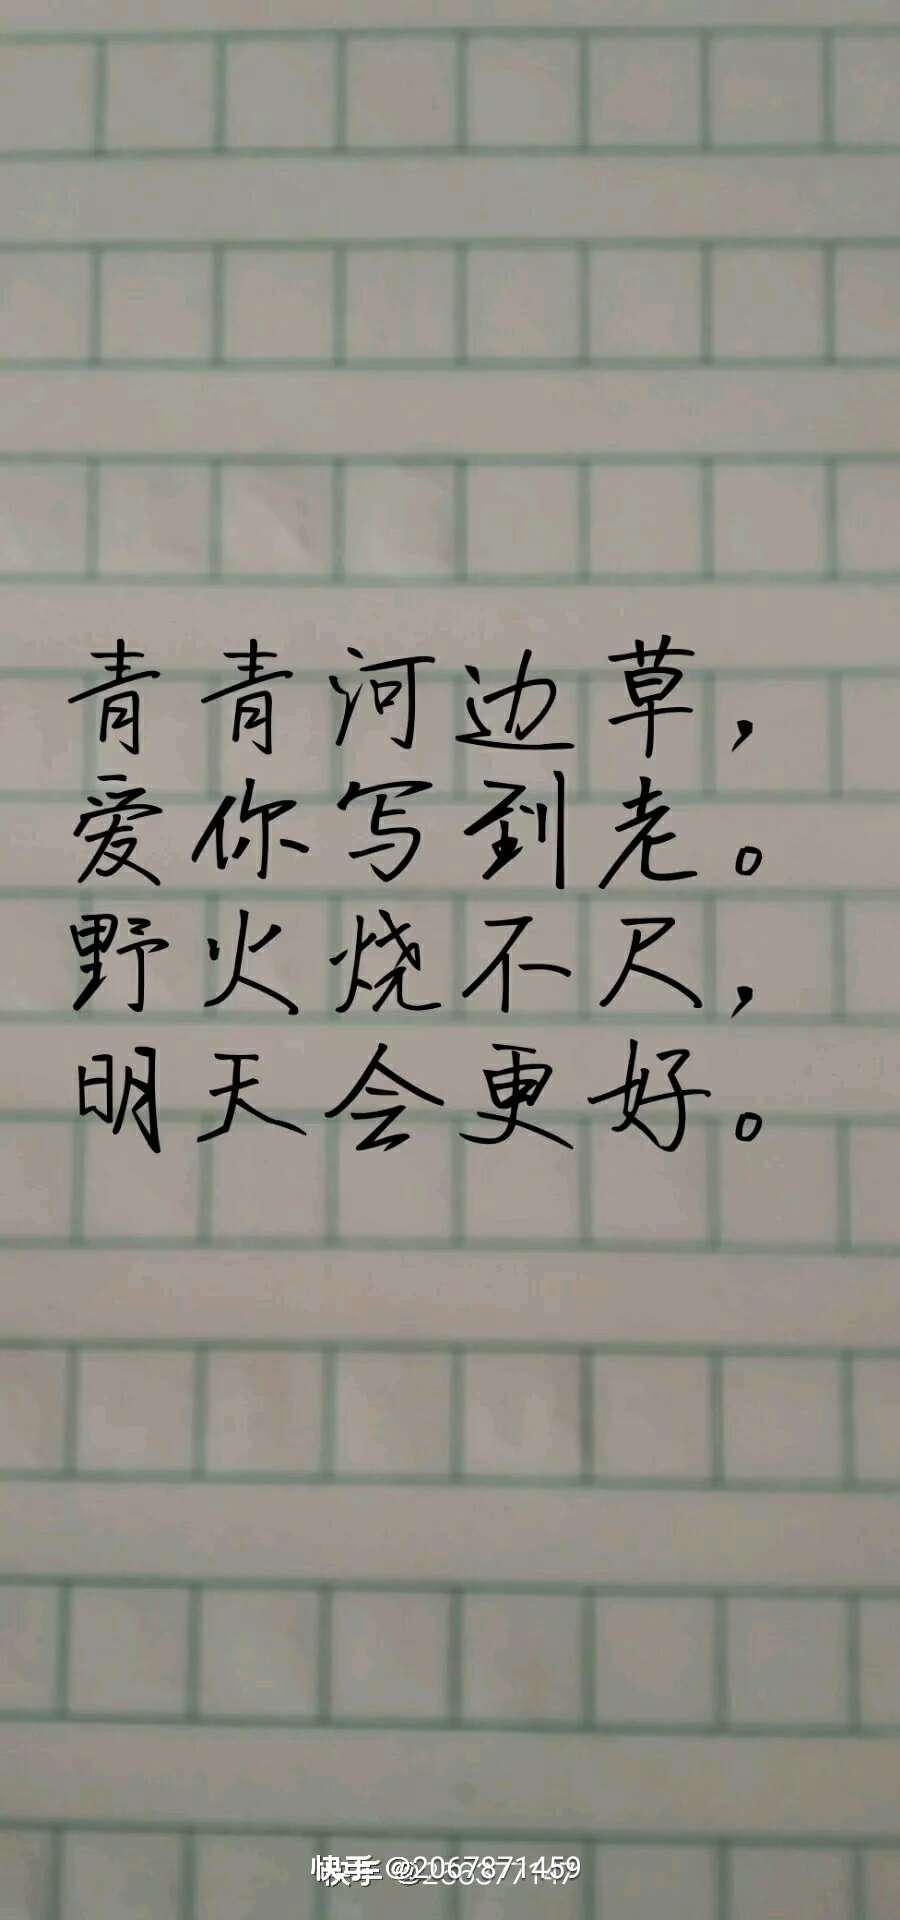 青青河边草，
爱你写到老。
野火烧不尺，
明天会更好。
快手 @2067871459